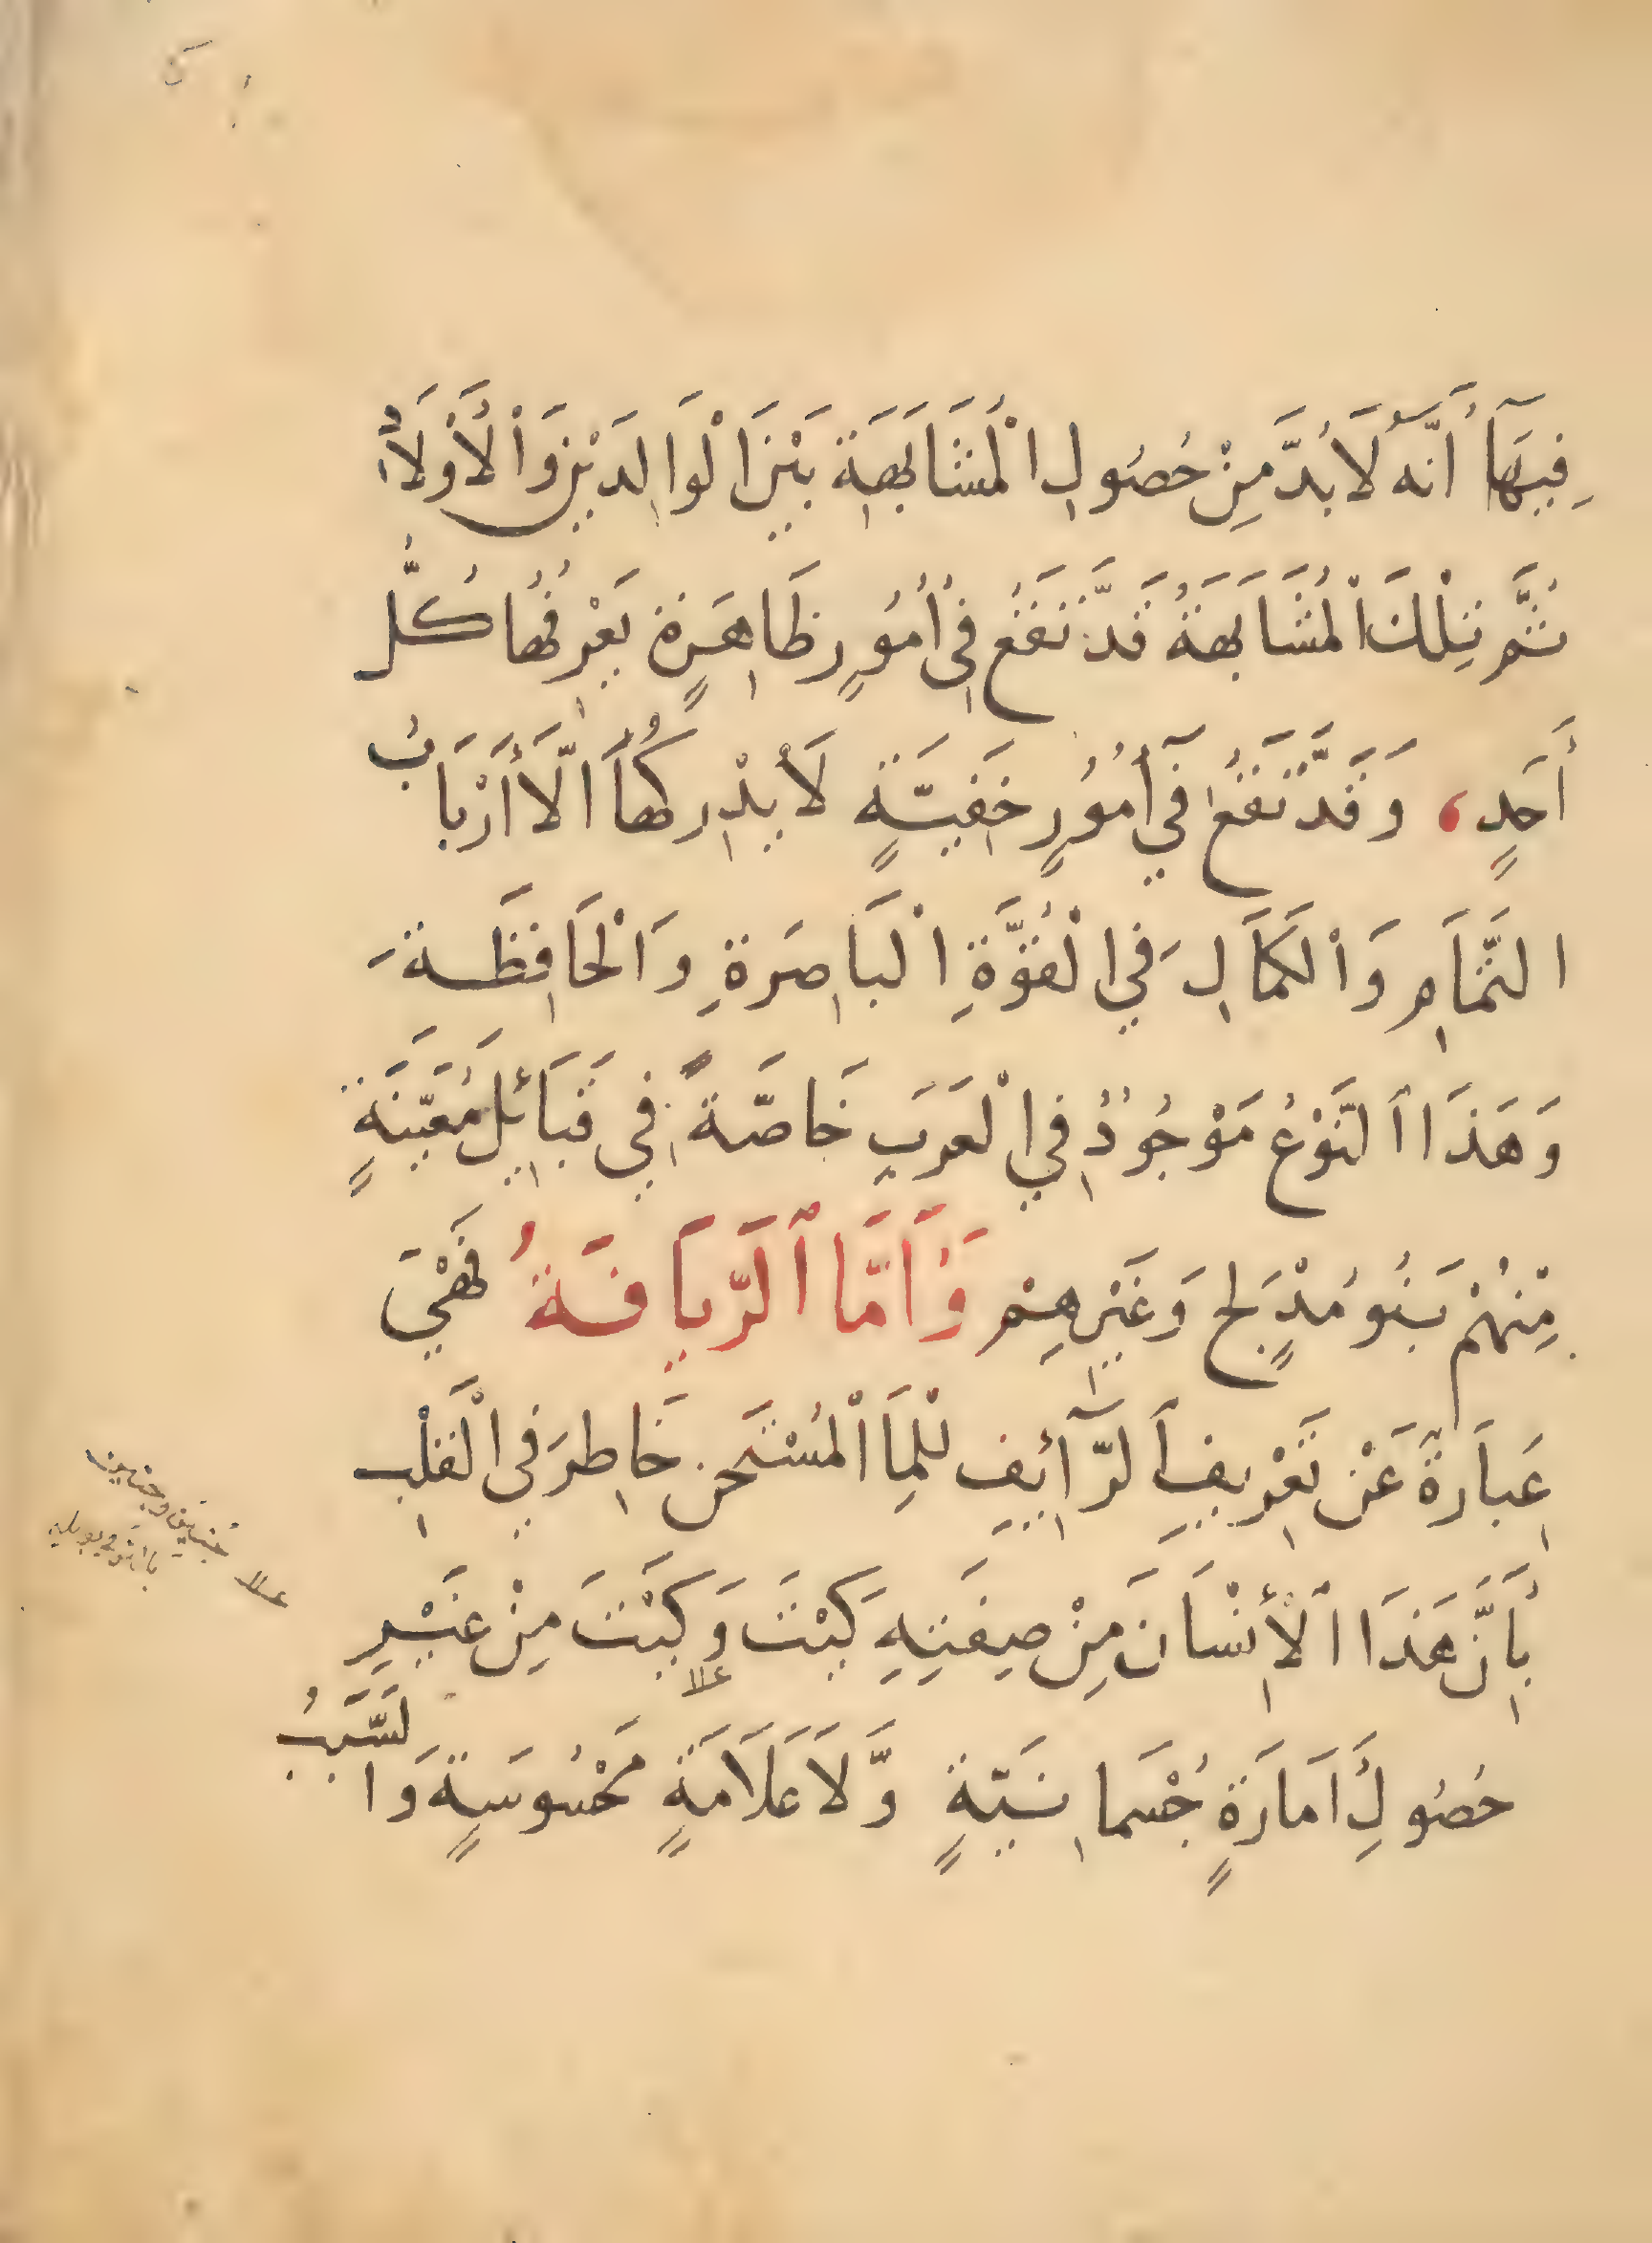 فِيهَآ أَنَّهُ لَابُدَّ مِنْ حُصُولِ الْمُشَابَهَةِ بَيْنَ الْوَالِدَيْنِ وَالْأَوْلَادِ
ثُمَّ تِلْكَ الْمُشَابَهَةُ قَدْ تَقَعُ فِي أُمُورٍ ظَاهِرَةٍ يَعْرِفُهَا كُلُّ
أَحَدٍ، وَقَدْ تَقَعُ فِيٓ أُمُورٍ خَفِيَّةٍ لَا يُدْرِكُهَا إِلَّا أَرْبَابُ
التَّمَامِ وَالْكَمَالِ فِي الْقُوَّةِ الْبَاصِرَةِ وَالْحَافِظَةِ
وَهَذَا النَّوْعُ مَوْجُودٌ فِي الْعَرَبِ خَاصَّةً فِي قَبَائِلَ مُعَيَّنَةٍ
مِنْهُمْ بَنُو مُدْلِجٍ وَغَيْرِهِمْ وَأَمَّا الرِّيَافَةُ فَهِيَ
عِبَارَةٌ عَنْ تَعْرِيفِ الرَّآئِفِ لِلْمَا الْمُسْتَحِن خَاطِرَ فِي الْقَلْبِ
بِأَنَّ هَذَا الْإِنْسَانَ مِنْ صِفَتِهِ كَيْتَ وَكَيْتَ مِنْ غَيْرِ
حُصُولِ أَمَارَةٍ جُسْمَانِيَّةٍ وَّلَا عَلَامَةٍ مَحْسُوسَةٍ وَالسَّبَبُ